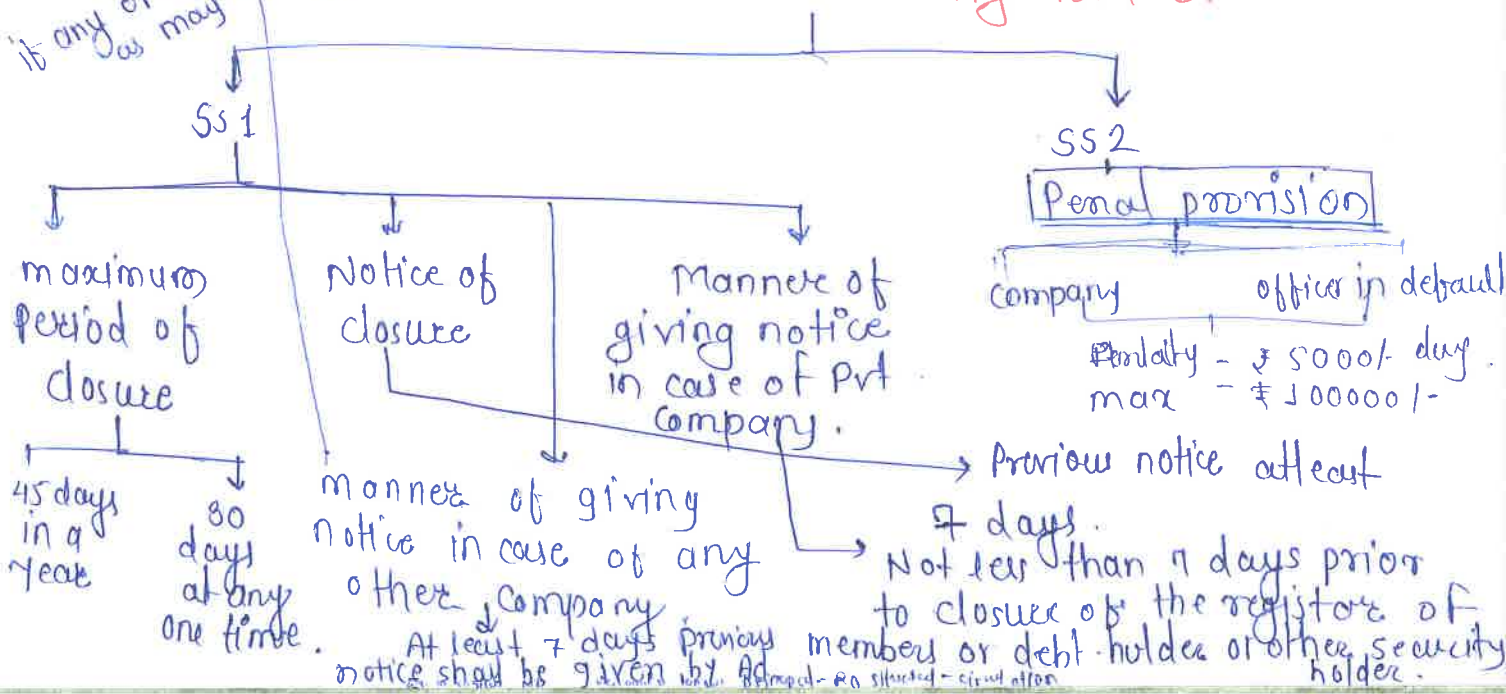 it any or
as may
SS1
SS2
Penal provision
maximum
Period of
closure
Notice of
closure
Manner of
giving notice
in case of Pvt
Company.
company officer in default
Penlalty - ₹ 5000/- day.
max - ₹ 100000/-
45 days
in a
year
30
days
at any
one time.
manner of giving
notice in case of any
other company
At least 7 days previous
notice shall be given by
Previous notice atleast
7 days.
Not less than 7 days prior
to closure of the registore of
members or debt. holder or other security
holder.